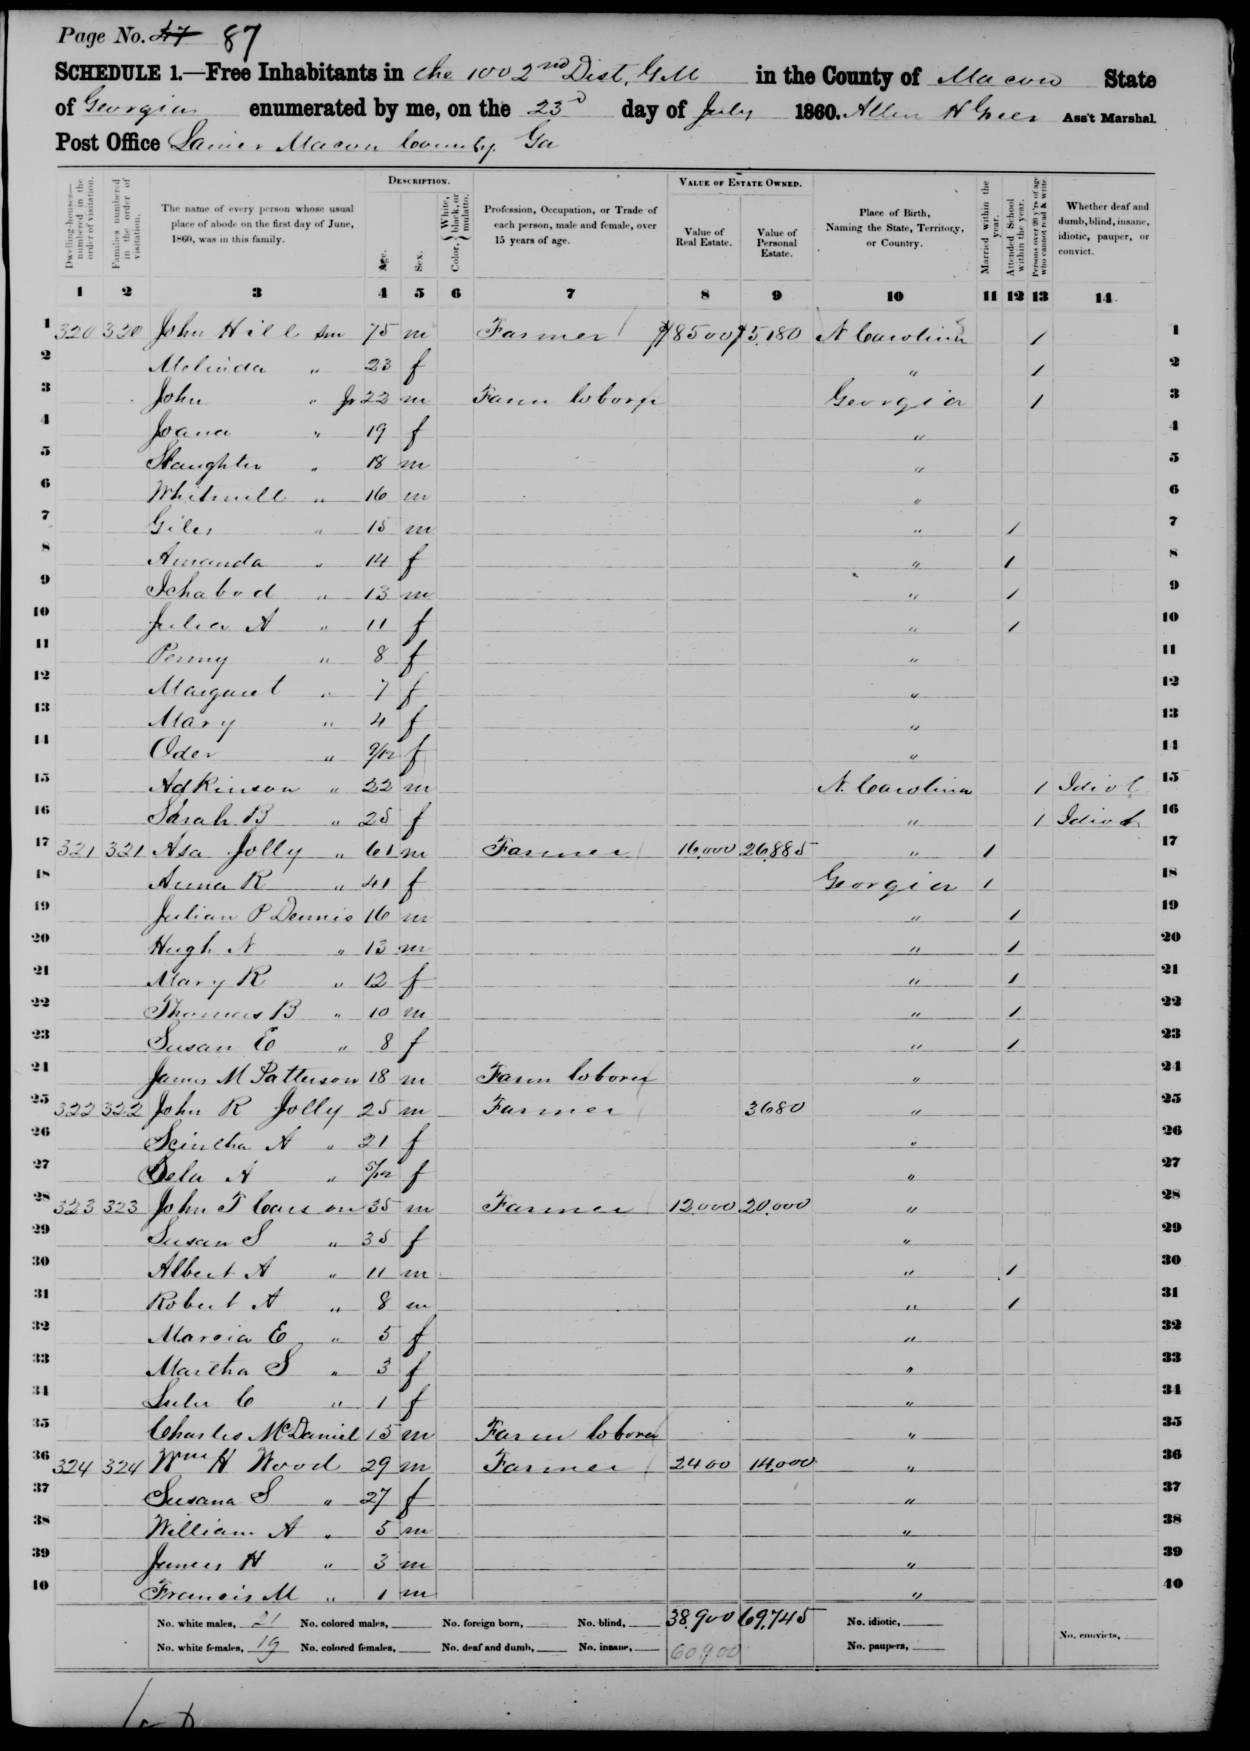 Page No. 47 87
SCHEDULE 1.—Free Inhabitants in the 1002nd Dist, G.M in the County of Macon State
of Georgia enumerated by me, on the 23d day of July 1860. Allen H Greer Ass't Marshal.
Post Office Lanier Macon County Ga
Dwelling-houses—numbered in the order of visitation.
Families numbered in the order of visitation.
The name of every person whose usual place of abode on the first day of June, 1860, was in this family.
DESCRIPTION.
Age.
Sex.
Color, { White, black, or mulatto.
Profession, Occupation, or Trade of each person, male and female, over 15 years of age.
VALUE OF ESTATE OWNED.
Value of Real Estate.
Value of Personal Estate.
Place of Birth, Naming the State, Territory, or Country.
Married within the year.
Attended School within the year.
Persons over 20 y'rs of age who cannot read & write.
Whether deaf and dumb, blind, insane, idiotic, pauper, or convict.
1 2 3 4 5 6 7 8 9 10 11 12 13 14
1 320 320 John Hill Snr 75 m Farmer $8500 $5,180 N Carolina 1 1
2 Melinda " 23 f " 1 2
3 John " Jr 22 m Farm laborer Georgia 1 3
4 Joana " 19 f " 4
5 Slaughter " 18 m " 5
6 Whitmill " 16 m " 6
7 Giles " 15 m " 1 7
8 Amanda " 14 f " 1 8
9 Ichabod " 13 m " 1 9
10 Julia A " 11 f " 1 10
11 Penny " 8 f " 11
12 Margaret " 7 f " 12
13 Mary " 4 f " 13
14 Oder " 9/12 f " 14
15 Adkinson " 22 m N. Carolina 1 Idiot 15
16 Sarah B " 25 f " 1 Idiot 16
17 321 321 Asa Jolly " 61 m Farmer 16,000 26,885 " 1 17
18 Anna R " 41 f Georgia 1 18
19 Julian P Dennis 16 m " 1 19
20 Hugh N " 13 m " 1 20
21 Mary R " 12 f " 1 21
22 Thomas B " 10 m " 1 22
23 Susan E " 8 f " 1 23
24 James M Patterson 18 m Farm laborer " 24
25 322 322 John R Jolly 25 m Farmer 3680 " 25
26 Scintha A " 21 f " 26
27 Dela A " 5/12 f " 27
28 323 323 John T Carson 35 m Farmer 12,000 20,000 " 28
29 Susan S " 35 f " 29
30 Albert A " 11 m " 1 30
31 Robert A " 8 m " 1 31
32 Marcia E " 5 f " 32
33 Martha S " 3 f " 33
34 Lula C " 1 f " 34
35 Charles McDaniel 15 m Farm laborer " 35
36 324 324 Wm H Wood 29 m Farmer 2400 14,000 " 36
37 Susana S " 27 f " 37
38 William A " 5 m " 38
39 James H " 3 m " 39
40 Francis M " 1 m " 40
No. white males, 21 No. colored males, No. foreign born, No. blind, 38,900 69,745 No. idiotic,
No. white females, 19 No. colored females, No. deaf and dumb, No. insane, 60900 No. paupers, No. convicts,